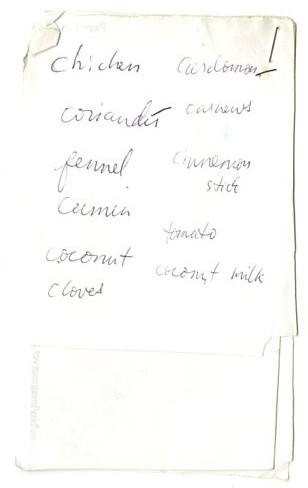 chicken
coriander
fennel
cumin
coconut
cloves
cardomom
cashews
cinnemon
stick
tomato
coconut milk